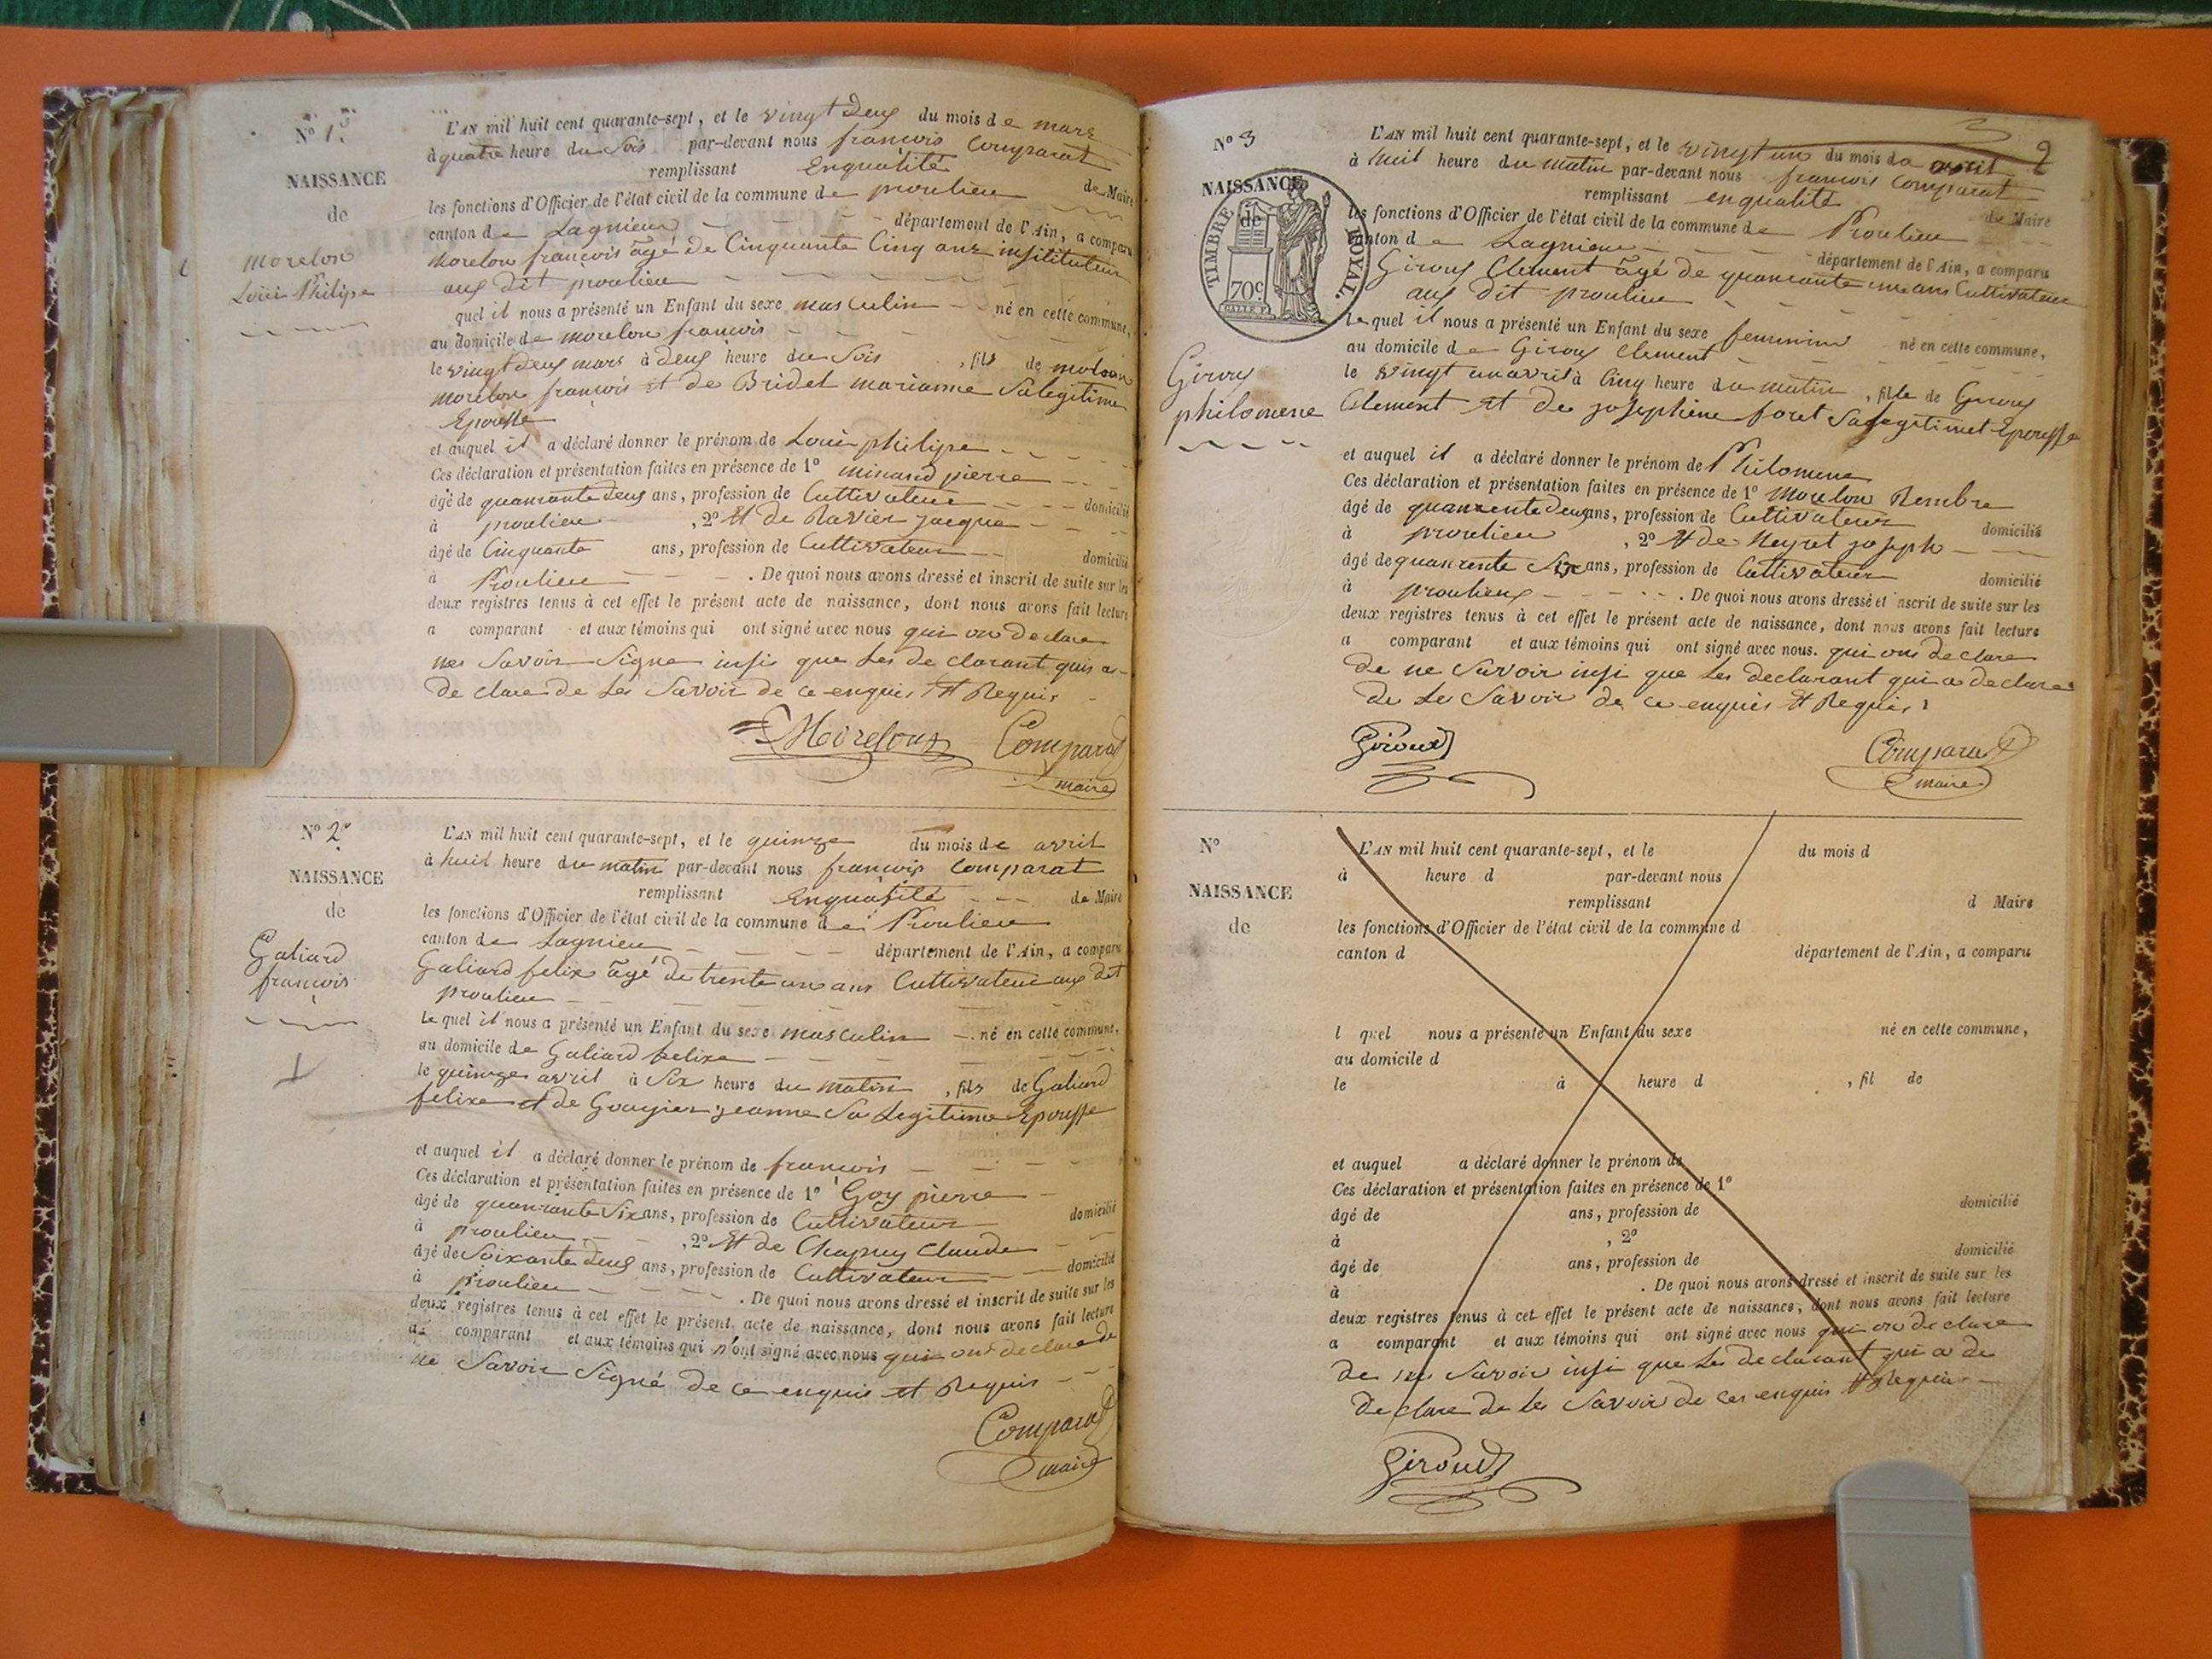 N° 1.
NAISSANCE
de
morelon
Loui Philipe
L'AN mil huit cent quarante-sept, et le vingt Deux du mois de mars
à quatre heure du Soir par-devant nous francois Comparat
remplissant Enqualité de Maire
les fonctions d'Officier de l'état civil de la commune de proulieu
canton de Lagnieu département de l'Ain, a comparu
morelon francois âgé de Cinquante Cinq ans instituteur
aux Dit proulieu
quel il nous a présenté un Enfant du sexe masculin né en cette commune,
au domicile de morelon francois
le vingt deux mars à deux heure du Soir, fils de
morelon francois Et de Bridet marianne Salegitime
Epousse
et auquel il a déclaré donner le prénom de Loui philipe
Ces déclaration et présentation faites en présence de 1° minard pierre
âgé de quanrante deux ans, profession de Cultivateur domicilié
à proulieu, 2° Et de Ravier jacque
âgé de Cinquante ans, profession de Cultivateur domicilié
à Proulieu. De quoi nous avons dressé et inscrit de suite sur les
deux registres tenus à cet effet le présent acte de naissance, dont nous avons fait lecture
a comparant et aux témoins qui ont signé avec nous qui on declare
nes Savoir Signe insi que Les de clarant quis a
de clare de Les Savoir de ce enquis Et Requis
Morelon Comparat
maire
N° 2°
NAISSANCE
de
Galiard
francois
L'AN mil huit cent quarante-sept, et le quinze du mois de avril
à huit heure du matin par-devant nous francois Comparat
remplissant Enqualité de Maire
les fonctions d'Officier de l'état civil de la commune de Proulieu
canton de Lagnieu département de l'Ain, a comparu
Galiard felix âgé de trente un ans Cultivateur aux dit
proulieu
le quel il nous a présenté un Enfant du sexe masculin né en cette commune,
au domicile de Galiard felixe
le quinze avril à Six heure du matin, fils de Galiard
felixe et de Gougier jeanne Sa Legitime Epousse
et auquel il a déclaré donner le prénom de francois
Ces déclaration et présentation faites en présence de 1° Goy pierre
âgé de quanrante Six ans, profession de Cultivateur domicilié
à proulieu, 2° Et de Chapuy Claude
âgé de Soixante deux ans, profession de Cultivateur domicilié
à proulieu. De quoi nous avons dressé et inscrit de suite sur les
deux registres tenus à cet effet le présent acte de naissance, dont nous avons fait lecture
au comparant et aux témoins qui n'ont signé avec nous qui ont declare de
ne Savoir Signé de ce enquis et Requis
Comparat
maire
2
N° 3
NAISSANCE
de
TIMBRE ROYAL.
70c
Girou
philomene
L'AN mil huit cent quarante-sept, et le vingt un du mois de avril
à huit heure du matin par-devant nous francois Comparat
remplissant enqualité de Maire
les fonctions d'Officier de l'état civil de la commune de Proulieu
canton de Lagnieu département de l'Ain, a comparu
Giroux Clement âgé de quanrante un ans Cultivateur
aux dit proulieu
le quel il nous a présenté un Enfant du sexe feminine né en cette commune,
au domicile de Giroux Clement
le vingt un avril à Cinq heure du matin, fille de Giroux
Clement Et de josephine foret Salegitimet Epousse
et auquel il a déclaré donner le prénom de Philomene
Ces déclaration et présentation faites en présence de 1° Morelon Rembre
âgé de quanrente deux ans, profession de Cultivateur domicilié
à proulieu, 2° Et de Neyret joseph
âgé de quanrente Six ans, profession de Cultivateur domicilié
à proulieux. De quoi nous avons dressé et inscrit de suite sur les
deux registres tenus à cet effet le présent acte de naissance, dont nous avons fait lecture
a comparant et aux témoins qui ont signé avec nous. qui ons declare
de ne Savoir insi que Les declarant qui a declare
de Le Savoir de ce enquis Et Requis
Giroud Comparat
maire
N°
NAISSANCE
de
L'AN mil huit cent quarante-sept, et le du mois d
à heure d par-devant nous
remplissant d Maire
les fonctions d'Officier de l'état civil de la commune d
canton d département de l'Ain, a comparu
l quel nous a présenté un Enfant du sexe né en cette commune,
au domicile d
le à heure d, fil de
et auquel a déclaré donner le prénom de
Ces déclaration et présentation faites en présence de 1°
âgé de ans, profession de domicilié
à, 2°
âgé de ans, profession de domicilié
à. De quoi nous avons dressé et inscrit de suite sur les
deux registres tenus à cet effet le présent acte de naissance, dont nous avons fait lecture
a comparant et aux témoins qui ont signé avec nous qui on declare
de nes Savoir insi que Les declarant qui a de
declare de Les Savoir de ces enquis Et Requis
Giroud